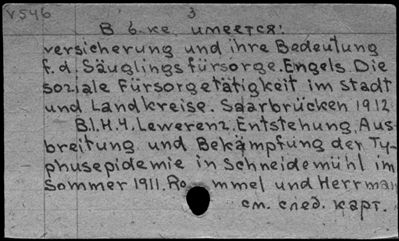 V546 3
В б-ке имеется:
versicherung und ihre Bedeutung
f.d. Säuglingsfürsorge. Engels. Die
soziale Fürsorgetätigkeit im Stadt
und Landkreise. Saarbrücken 1912.
B.I.H.4. Lewerenz. Entstehung, Aus-
breitung und Bekämpfung der Ty-
phusepidemie in Schneidemühl im
Sommer 1911. Rommel und Herrman
см. след. карт.